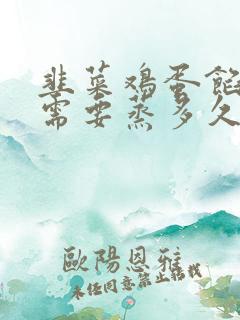 韭菜鸡蛋馅
需要蒸多久
歐陽恩雅
未经同意禁止转载